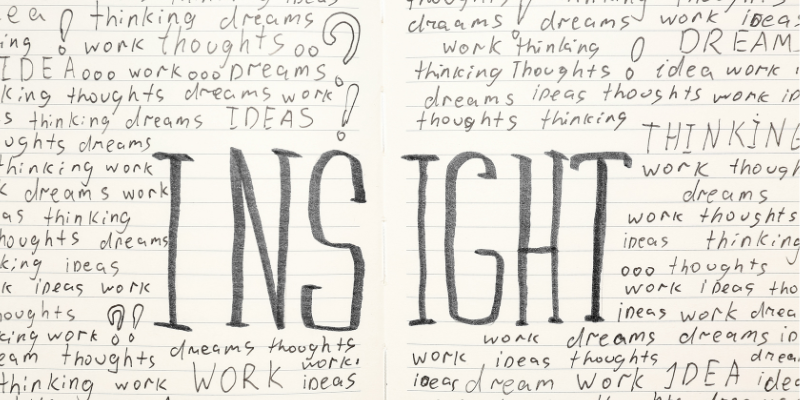 thinking dreams
work thoughts
IDEA ooo work ooo Dreams
thoughts dreams work
s thinking dreams IDEAS
ughts dreams
thinking work
k dreams work
as thinking
houghts dreams
king ideas
k ideas work
oughts
king work
eam thoughts dreams thoughts
work!
thinking work WORK ideas
INS
dreams dreams work ideas
work thinking DREAM
thinking Thoughts idea work
dreams ideas thoughts work
thoughts thinking THINKING
work though
dreams
work thoughts
ideas thinking
ooo thoughts
work ideas tho
ideas work drea
IGHT
work dreams dreams
work ideas thoughts dream
ideas dream Work IDEA idea